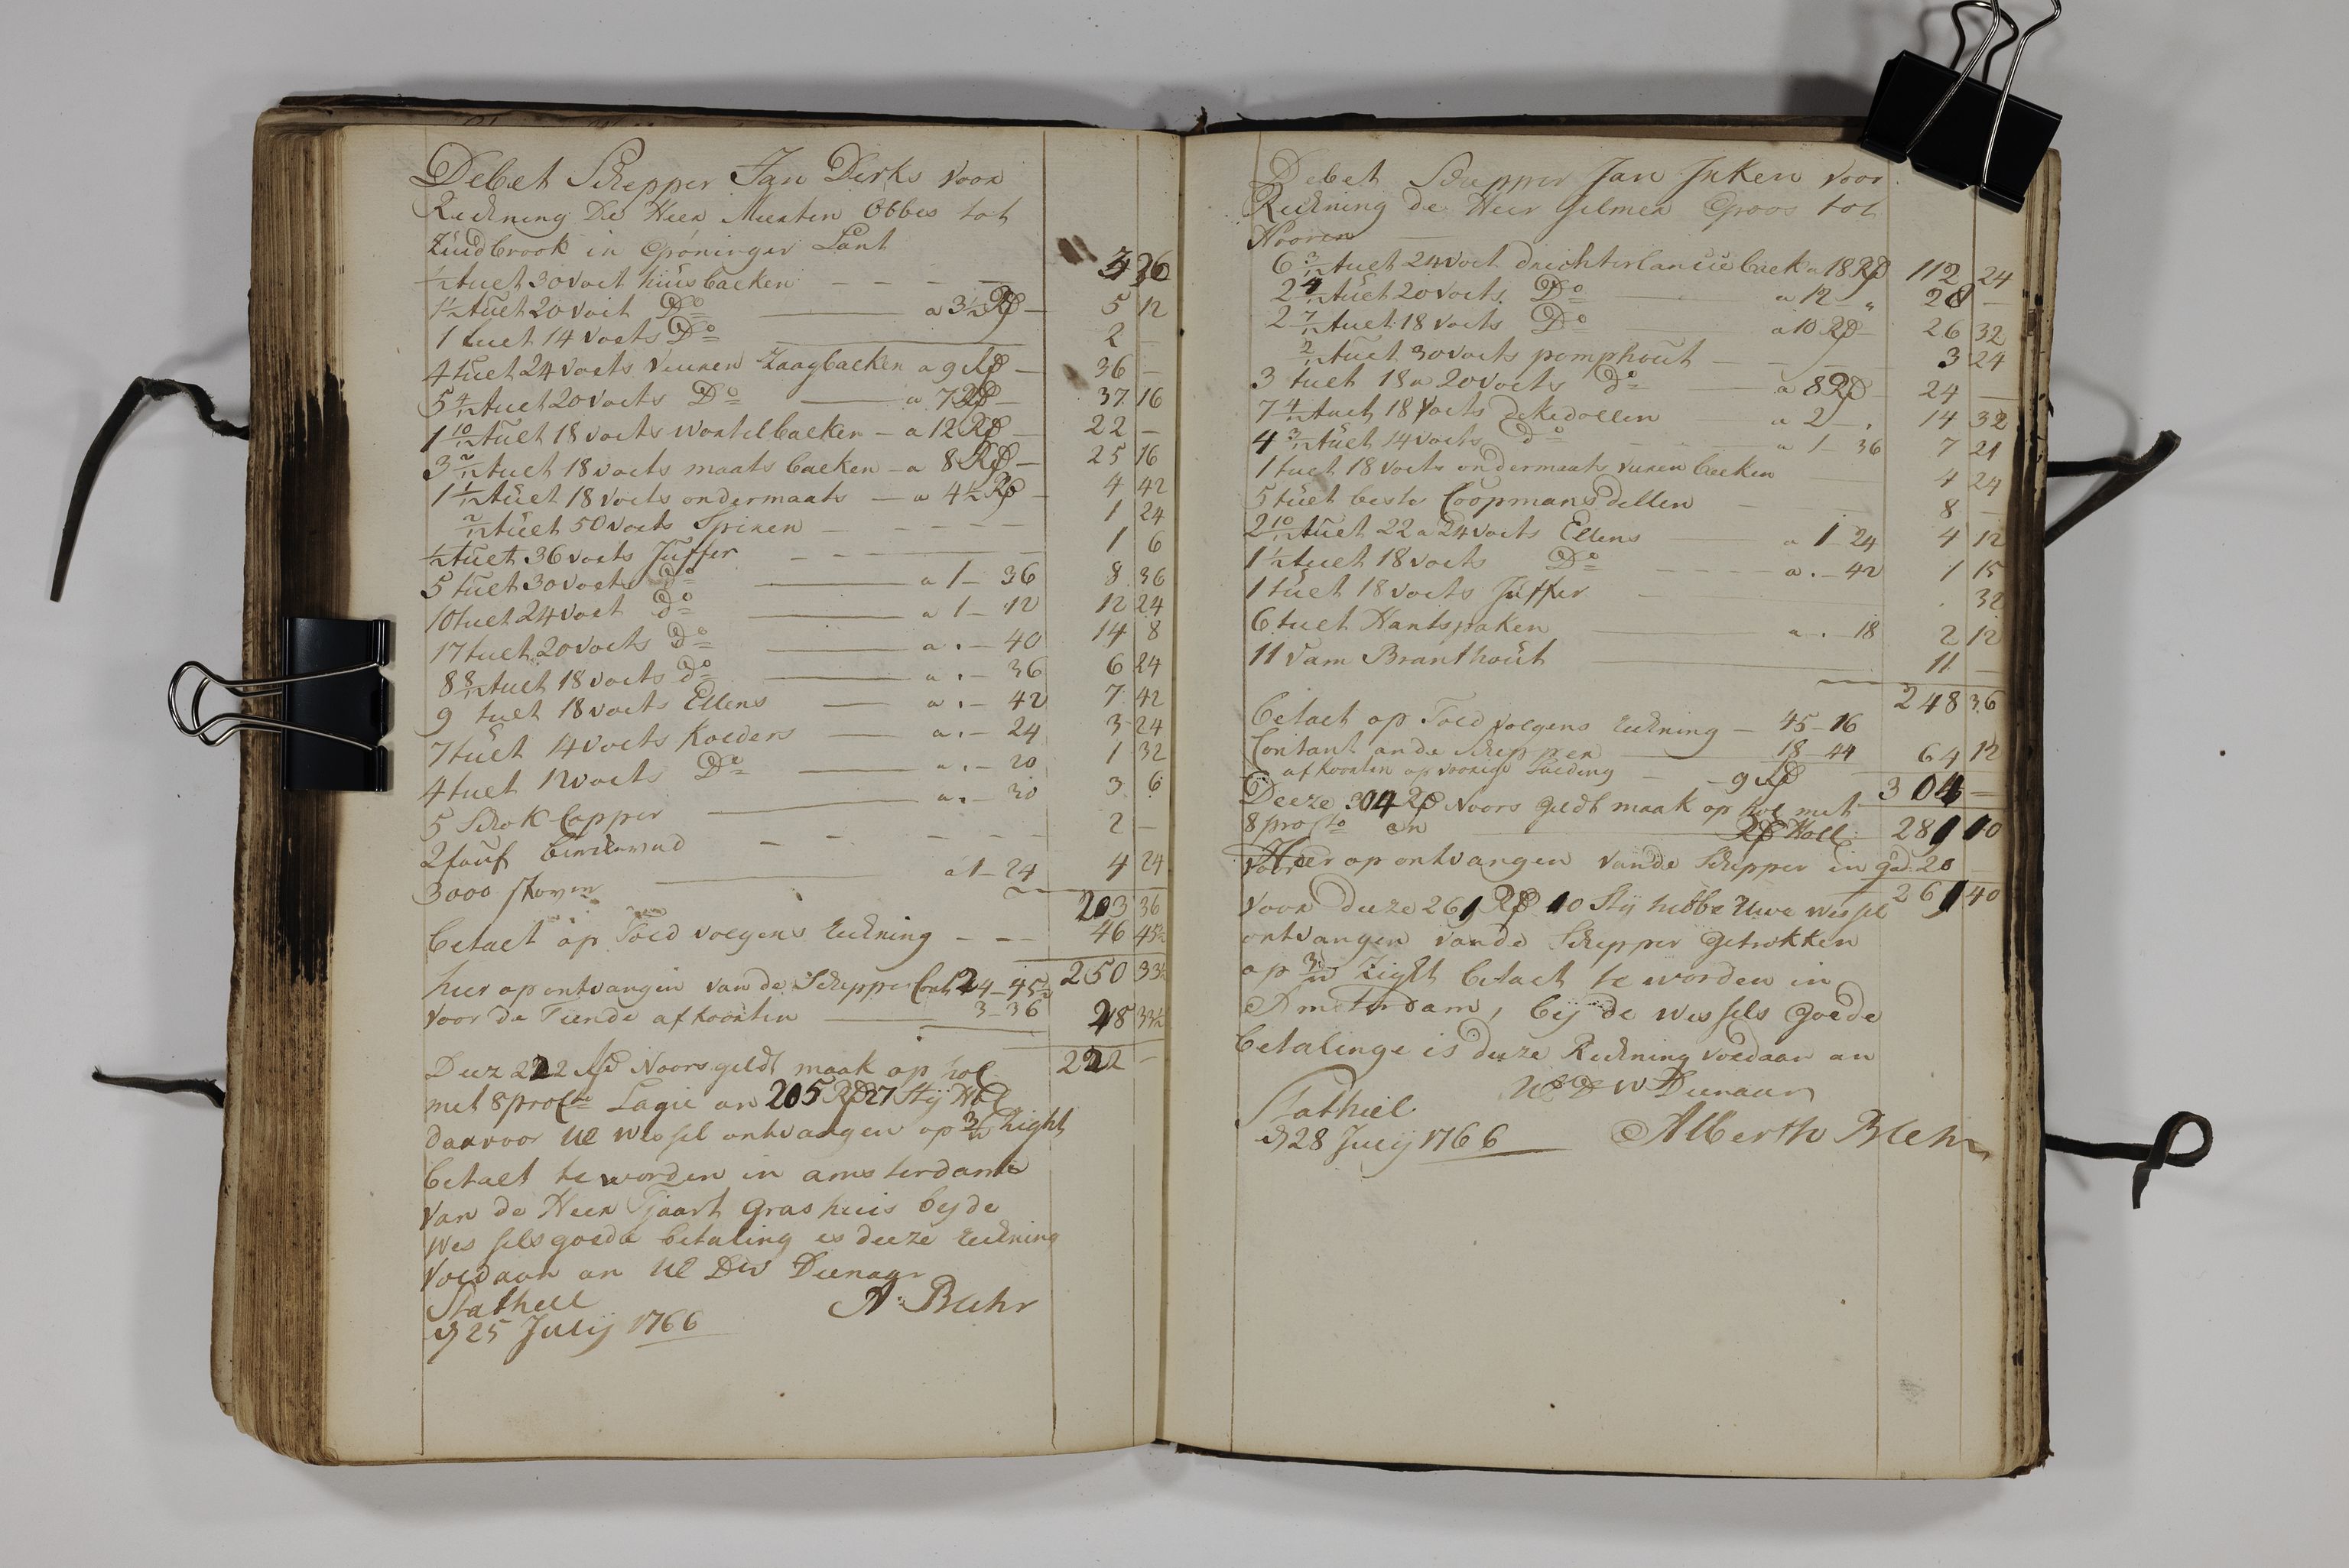 Debet Schepper Jan Dirks voor
Rechning De Heer Meerten Obbes tot
Zuidbrook in Gröninger Lant
½ tuet 30 voet hüisbaeken — — — — 3 36
1½ tuet 20 voit Do — a 3½ Rd — 5 12
1 tuet 14 voets Do 2 —
4 tuet 24 voets vuuren Zaagbaeken a 9 Rd — 36 —
5 4/12 tuet 20 voets Do — a 7 Rd — 37 16
1 10/12 tuet 18 voets wortelbaeken — a 12 Rd — 22 —
3 2/12 tuet 18 voets maats baeken — a 8 Rd — 25 16
1 1/12 tüet 18 voets ondermaats — a 4½ Rd — 4 42
2/12 tüet 50 voets Spieren — — — — 1 24
½ tuet 36 voets Juffer — — — — 1 6
5 tuet 30 voets do — a 1 — 36 8 36
10 tuet 24 voet do — a 1 — 12 12 24
17 tuet 20 voets Do — a . — 40 14 8
8 8/12 tuet 18 voets do — a . — 36 6 24
9 tuet 18 voets Ellens — a . — 42 7 42
7 tüet 14 voets Koeders — a . — 24 3 24
4 tuet 12 voets Do — a . — 20 1 32
5 Schok Capper — a . — 30 3 6
2 fauf — — — — 2 —
3000 — a 1 — 24 4 24
203 36
betaelt op Toed voegens rechning — — — 46 45½
250 33½
hier op ontvangen van de Schepper Cont 24 — 45½
voor de Tiende afkoorten — 3 — 36 28 33½
Deez 222 Rd Noors geldt maak op hol. 222 —
met 8 procto Lagie an 205 Rd 27 Stÿ Hol
daarvoor Ul Wessel ontvangen op 3/m Zight
betaelt te worden in amsterdam
van de Heer Tjaart Grashuis beÿ de
Wessels goede betaling is deeze rechning
Voldaan an Ul Dw Dienaar
Stathell A. Blehr
d 25 Julij 1766
Debet Schepper Jan Inken voor
Rechning de Heer Jelmer Groos tot
Hooren
6 3/12 tuet 24 voet drichterlancie baek a 18 Rd 112 24
2 4/12 tüet 20 voets. Do — a 12 „ 28 —
2 7/12 tuet 18 voets Do — a 10 Rd 26 32
2/12 tuet 30 voets pomphout — — — 3 24
3 tuet 18 a 20 voets do — a 8 Rd 24 —
7 4/12 tuet 18 voets dekedollen a 2 — . 14 32
4 3/12 tüet 14 voets do — a 1 — 36 7 21
1 tuet 18 voets ondermaats vuren baeken 4 24
5 tüet beste Coopmans dellen — 8 —
2 10/12 tuet 22 a 24 voets Ellens — a 1 — 24 4 12
1½ tuet 18 voets Do — a . — 42 1 15
1 tüet 18 voets Jüffer — . 32
6 tuet Hantspaken — a . — 18 2 12
11 Vam Branthoüt — 11 —
248 36
betaet op Toed voegens rechning — 45 — 16
Contant ande Schepper — 18 — 44 64 12
afkoorten op voorige Laeding — 9 Rd
Deeze 304 Rd Noors geldt maak op hol met 304 —
8 procto an Rd Holl: 281 10
Hier op ontvangen vande Schepper in gad. 20
261 10
voor deeze 261 Rd 10 Stÿ hebbe Uwe wessel
ontvangen vande Schepper getrokken
op 3/m Zight betaelt te worden in
Amsterdam, beÿ de wessels goede
betalinge is deeze Rechning voldaan an
Ul D W Dienaar
Stathiel
d 28 Julij 1766 Alberth Blehr